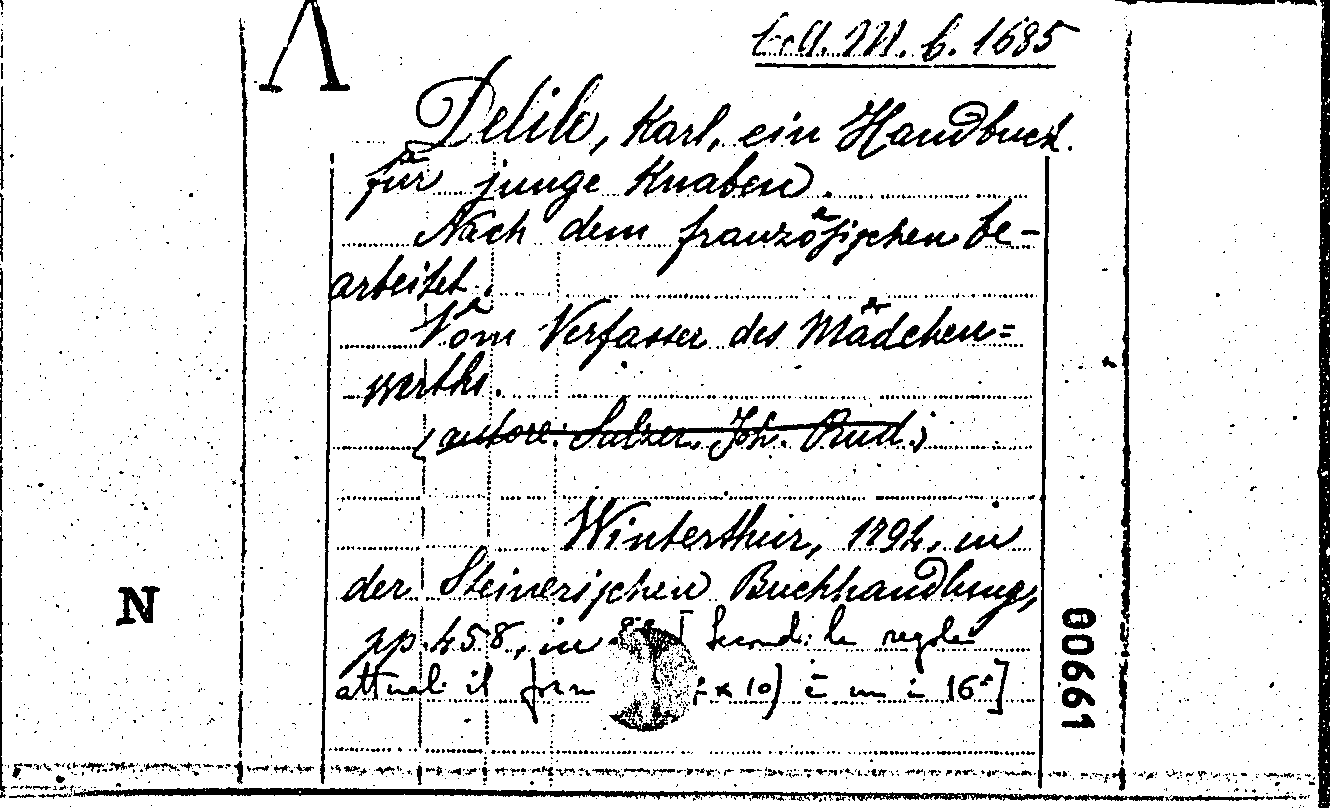 Λ
6. A. M. 6. 1685
Delile, Karl, ein Handbuch
für junge Knaben.
Nach dem französischen be-
arbeitet.
Vom Verfasser des Mädchen=
werths.
(autore: Sulzer Joh. Rud.)
Winterthur, 1794, in
der Steinerischen Buchhandlung,
pp. 458, in 8º [Secondo le regole
attuali il form x 10) è un in 16º]
N
00661